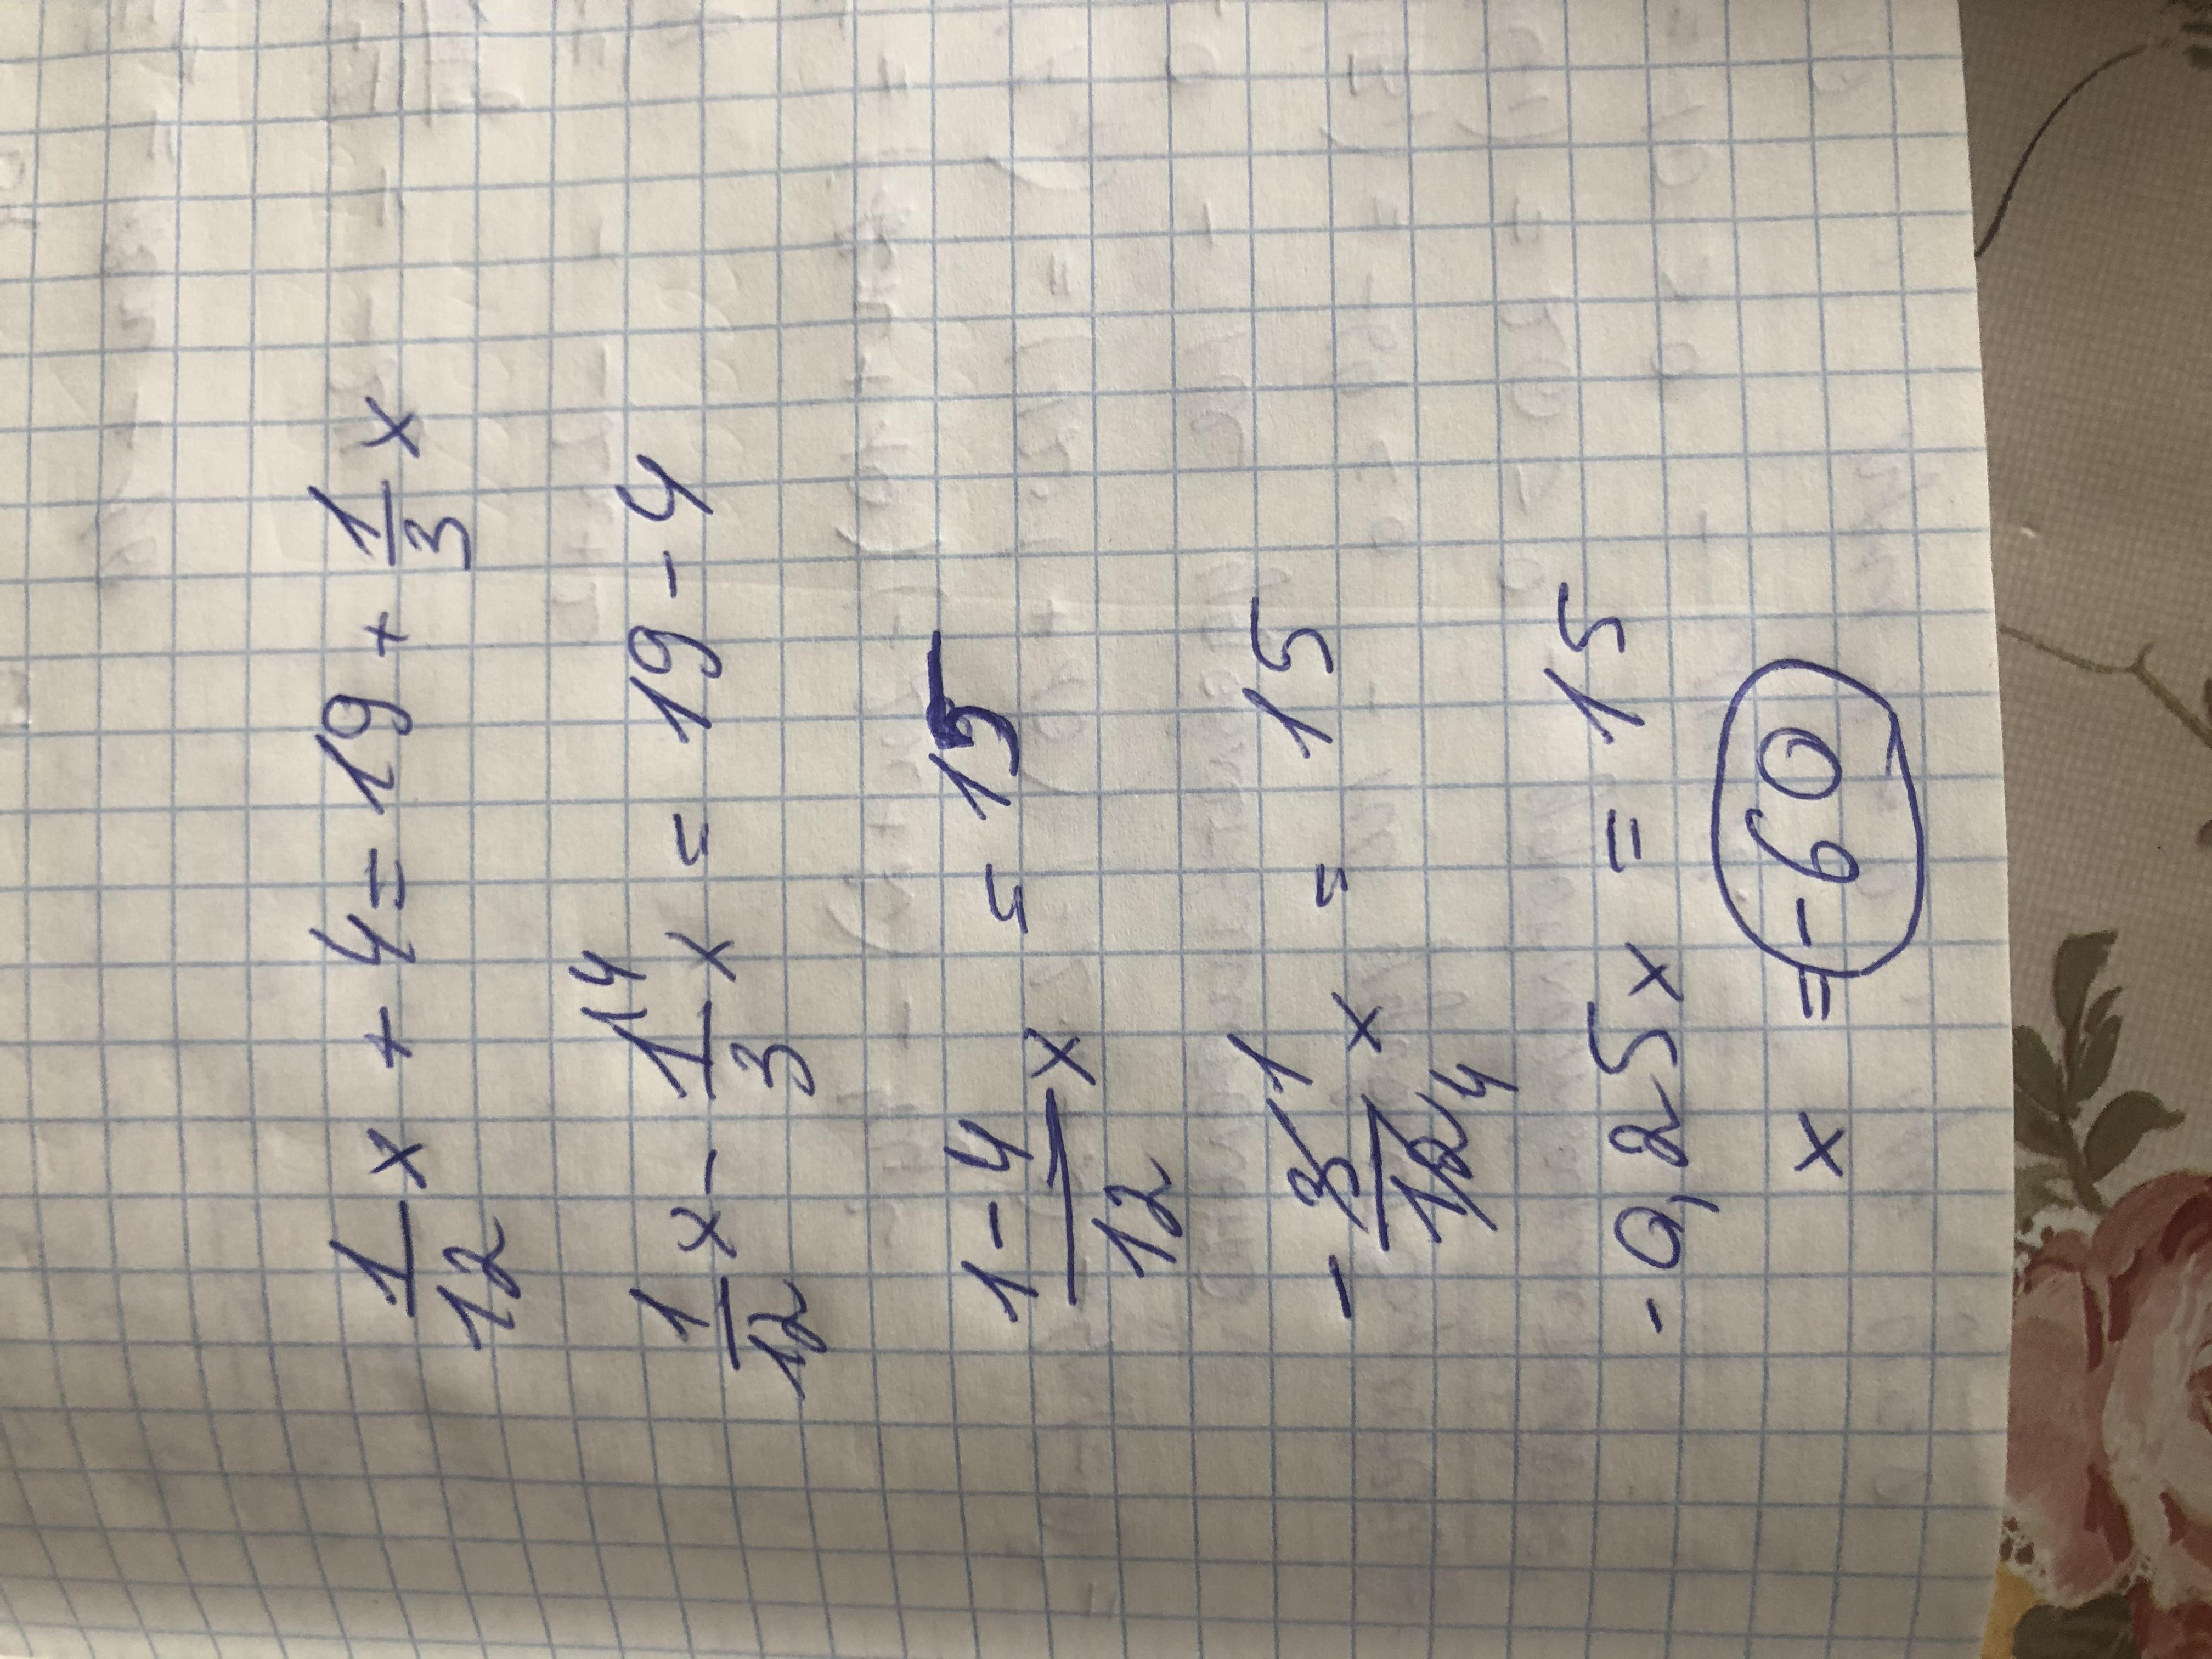 1/12 x + 4 = 19 + 1/3 x
1/12 x - 1/3 ⁴ x = 19 - 4
1-4/12 x = 15
- 3/12 1/4 x = 15
-0,25x = 15
x = -60